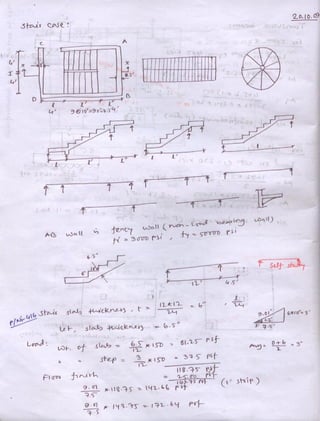 20.10.0
Stair case:
C A
6'
I
4'
D B
4' 4'
AB wall is fency wall (non-load bearing wall)
fc' = 3000 psi, fy = 50000 psi
Self study
6.5"
6"
12' 6.5'
Stair slab thickness, t = 12×12/24 = 6"
Let, slab thickness = 6.5"
9.01"
6"
7.5"
Avg = 0+6/2 = 3"
Load: Wt. of slab = 6.5/12 × 150 = 81.25 psf
" " step = 3/12 × 150 = 37.5 psf
118.75 psf
Floor finish = 25.00 psf
143.75 psf (1' strip)
9.01/7.5 × 118.75 = 142.66 psf
9.01/7.5 × 143.75 = 172.64 psf